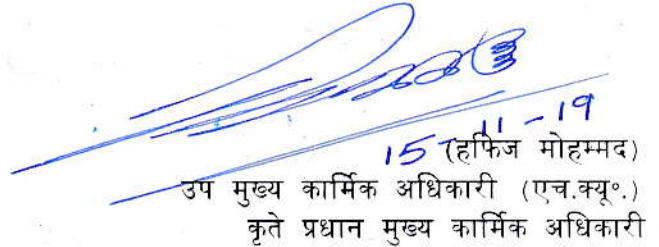 15-11-19
(हफिज मोहम्मद)
उप मुख्य कार्मिक अधिकारी (एच.क्यू॰.)
कृते प्रधान मुख्य कार्मिक अधिकारी